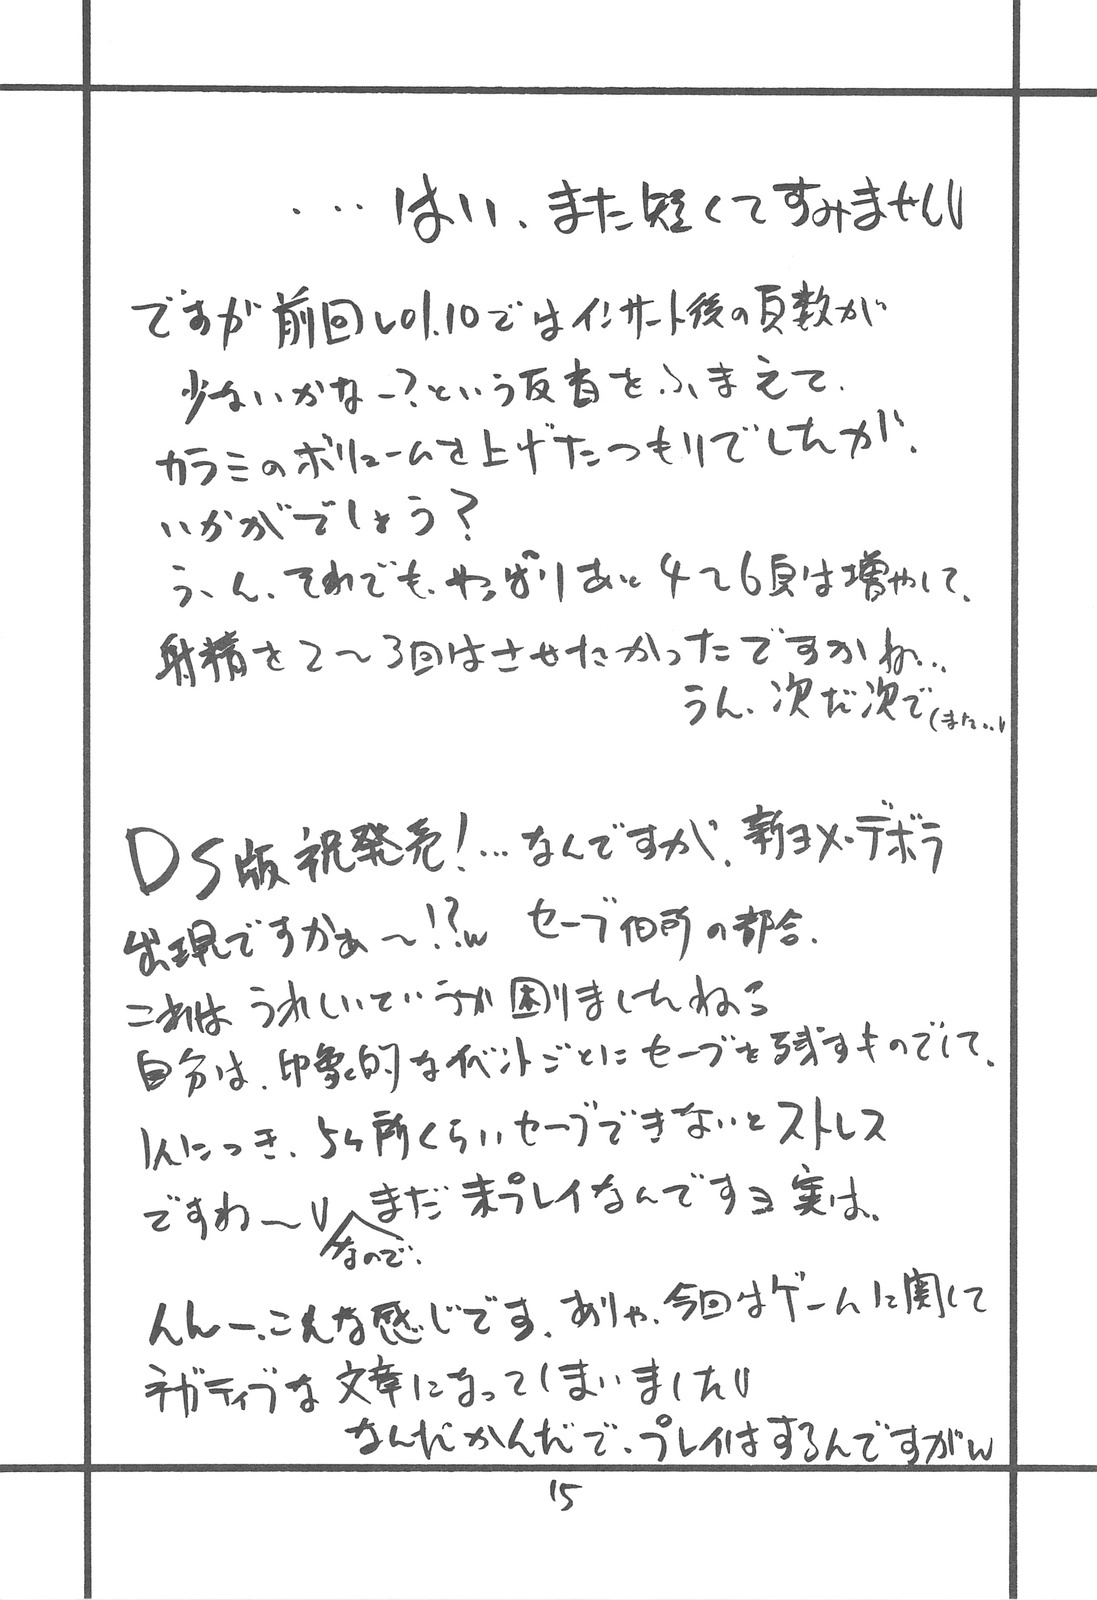 ...はい、また短くてすみません
ですが前回vol.10ではインサート後の頁数が
少ないかなー?という反省をふまえて、
カラミのボリュームを上げたつもりでしたが、
いかがでしょう?
う、ん、それでも、やっぱりあと4〜6頁は増やして、
射精を2〜3回はさせたかったですかね...
うん、次だ次で(また..
DS版祝発売!...なんですが、新ヨメ・デボラ
出現ですかぁ〜!?w セーブ個所の都合、
これは うれしいていうか困りましたねぇ
自分は、印象的なイベントごとにセーブを残すものでして、
1人につき、5ヶ所くらいセーブできないとストレス
ですわ〜 まだ未プレイなんですヨ実は。
なので、
んんー、こんな感じです、ありゃ、今回はゲームに関して
ネガティブな文章になってしまいました
なんだかんだで、プレイはするんですがw
15